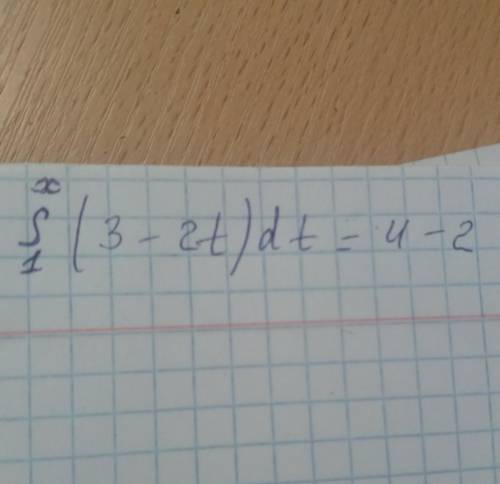 x
∫ (3 - 2t)dt = 4 - 2
1